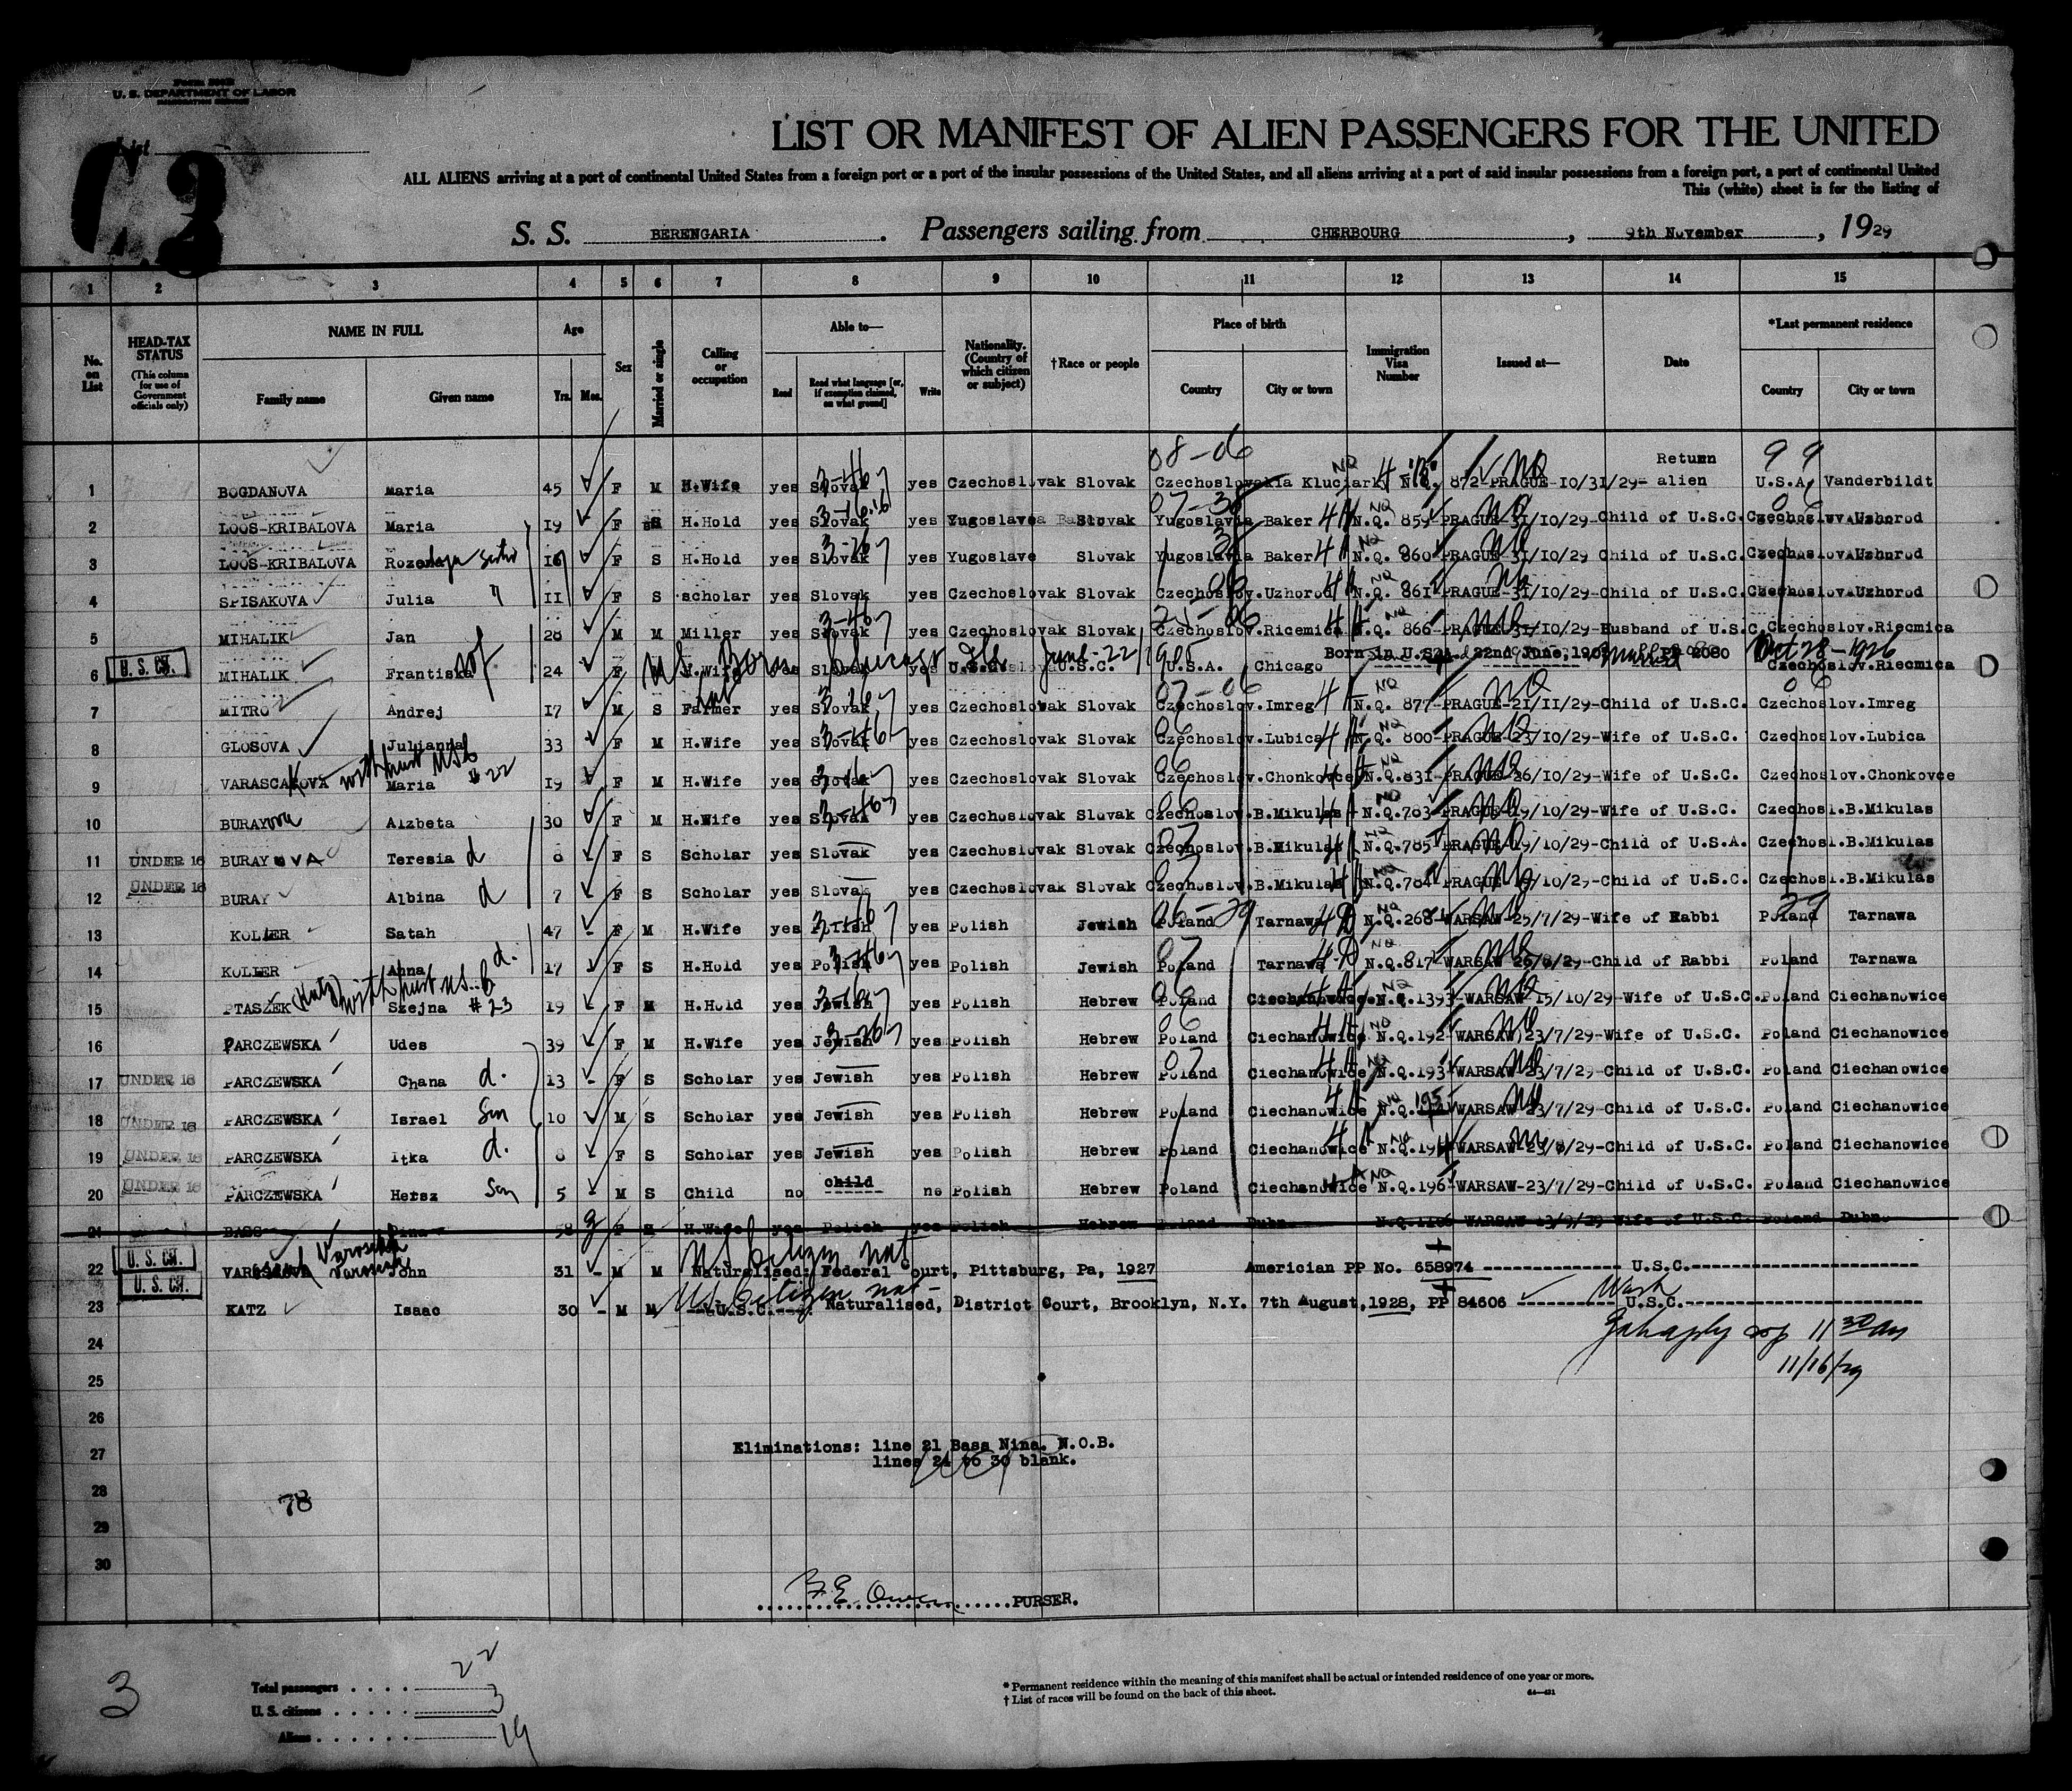 U. S. DEPARTMENT OF LABOR
List
C.3
LIST OR MANIFEST OF ALIEN PASSENGERS FOR THE UNITED
ALL ALIENS arriving at a port of continental United States from a foreign port or a port of the insular possessions of the United States, and all aliens arriving at a port of said insular possessions from a foreign port, a port of continental United
This (white) sheet is for the listing of
S. S. BERENGARIA. Passengers sailing from CHERBOURG, 9th November, 1929
1 2 3 4 5 6 7 8 9 10 11 12 13 14 15
No. on List
HEAD-TAX STATUS (This column for use of Government officials only)
NAME IN FULL Family name Given name
Age Yrs. Mos.
Sex
Married or single
Calling or occupation
Able to— Read Read what language [or, if exemption claimed, on what ground] Write
Nationality. (Country of which citizen or subject)
†Race or people
Place of birth Country City or town
Immigration Visa Number
Issued at—
Date
*Last permanent residence Country City or town
08-06 Return 99
1 BOGDANOVA Maria 45 F M H.Wife yes Slovak yes Czechoslovak Slovak Czechoslovakia Kluciark N.Q. 872-PRAGUE-10/31/29- alien U.S.A. Vanderbildt
2 LOOS-KRIBALOVA Maria 19 F S H.Hold yes Slovak yes Yugoslave Slovak Yugoslavia Baker N.Q. 859-PRAGUE-31/10/29-Child of U.S.C. Czechoslov.Uzhorod
3 LOOS-KRIBALOVA 16 F S H.Hold yes Slovak yes Yugoslave Slovak Yugoslavia Baker N.Q. 860-PRAGUE-31/10/29 Child of U.S.C. Czechoslov.Uzhorod
4 SPISAKOVA Julia " 11 F S scholar yes Slovak yes Czechoslovak Slovak Czechoslov.Uzhorod N.Q. 861-PRAGUE-31/10/29-Child of U.S.C. Czechoslov.Uzhorod
5 MIHALIK Jan 28 M M Miller yes Slovak yes Czechoslovak Slovak Czechoslov.Ricemica N.Q. 866-PRAGUE-31/10/29-Husband of U.S.C. Czechoslov.Riecmica
U. S. CIT. Born in U.S.A. 22nd June, PP 2080 Oct 28-1926
6 MIHALIK Frantiska 24 F H.Wife yes Slovak yes U.S.C. U.S.A. Chicago Czechoslov.Riecmica
US Born Chicago Ills June-22/1905
7 MITRO Andrej 17 M S Farmer yes Slovak yes Czechoslovak Slovak Czechoslov.Imreg N.Q. 877-PRAGUE-21/11/29-Child of U.S.C. Czechoslov.Imreg
8 GLOSOVA Julianna 33 F M H.Wife yes Slovak yes Czechoslovak Slovak Czechoslov.Lubica N.Q. 800-PRAGUE-23/10/29-Wife of U.S.C. Czechoslov.Lubica
9 VARASCAKOVA with husb USC #22 Maria 19 F M H.Wife yes Slovak yes Czechoslovak Slovak Czechoslov.Chonkovce N.Q.831-PRAGUE-26/10/29-Wife of U.S.C. Czechoslov.Chonkovce
10 BURAYova Alzbeta 30 F M H.Wife yes Slovak yes Czechoslovak Slovak Czechoslov.B.Mikulas N.Q.783-PRAGUE-19/10/29-Wife of U.S.C. Czechosl.B.Mikulas
11 UNDER 16 BURAYOVA Teresia d 8 F S Scholar yes Slovak yes Czechoslovak Slovak Czechoslov.B.Mikulas N.Q.785-PRAGUE-19/10/29-Child of U.S.A. Czechosl.B.Mikulas
12 UNDER 16 BURAY Albina d 7 F S Scholar yes Slovak yes Czechoslovak Slovak Czechoslov.B.Mikulas N.Q.784-PRAGUE-19/10/29-Child of U.S.C. Czechosl.B.Mikulas
13 KOLLER Satah 47 F M H.Wife yes Polish yes Polish Jewish Poland Tarnawa N.Q.268-WARSAW-25/7/29-Wife of Rabbi Poland Tarnawa
14 KOLLER Anna d. 17 F S H.Hold yes Polish yes Polish Jewish Poland Tarnawa N.Q.817-WARSAW 26/8/29-Child of Rabbi Poland Tarnawa
15 PTASZEK (Katz) with husb US.C #23 Szejna 19 F M H.Hold yes Jewish yes Polish Hebrew Poland Ciechanowice N.Q.1393-WARSAW-15/10/29-Wife of U.S.C. Poland Ciechanowice
16 PARCZEWSKA Udes 39 F M H.Wife yes Jewish yes Polish Hebrew Poland Ciechanowice N.Q.192-WARSAW,23/7/29-Wife of U.S.C. Poland Ciechanowice
17 UNDER 16 PARCZEWSKA Chana d. 13 F S Scholar yes Jewish yes Polish Hebrew Poland Ciechanowice N.Q.193-WARSAW-23/7/29-Child of U.S.C. Poland Ciechanowice
18 UNDER 16 PARCZEWSKA Israel Son 10 M S Scholar yes Jewish yes Polish Hebrew Poland Ciechanowice N.Q.195-WARSAW-23/7/29-Child of U.S.C. Poland Ciechanowice
19 UNDER 16 PARCZEWSKA Itka d. 8 F S Scholar yes Jewish yes Polish Hebrew Poland Ciechanowice N.Q.194-WARSAW-23/8/29-Child of U.S.C. Poland Ciechanowice
20 UNDER 16 PARCZEWSKA Hersz Son 5 M S Child no child no Polish Hebrew Poland Ciechanowice N.Q.196-WARSAW-23/7/29-Child of U.S.C. Poland Ciechanowice
21 BASS 58 F M H.Wife yes Polish yes Polish Hebrew Poland Dubn N.Q. WARSAW 13/9/29 Wife of U.S.C. Poland Dubn
U. S. CIT. US Citizen nat
22 John 31 - M M Naturalised: Federal Court, Pittsburg, Pa, 1927 Americian PP No. 658974 U.S.C.
U. S. CIT. US Citizen nat-
23 KATZ Isaac 30 - M M U.S.C. Naturalised, District Court, Brooklyn, N.Y. 7th August,1928, PP 84606 U.S.C.
24
11 30 am
25 11/16/29
26
27 Eliminations: line 21 Bass Nina. N.O.B.
lines 24 to 30 blank.
28
78
29
30
PURSER.
3
Total passengers 22
U. S. citizens 3
Aliens 19
* Permanent residence within the meaning of this manifest shall be actual or intended residence of one year or more.
† List of races will be found on the back of this sheet.